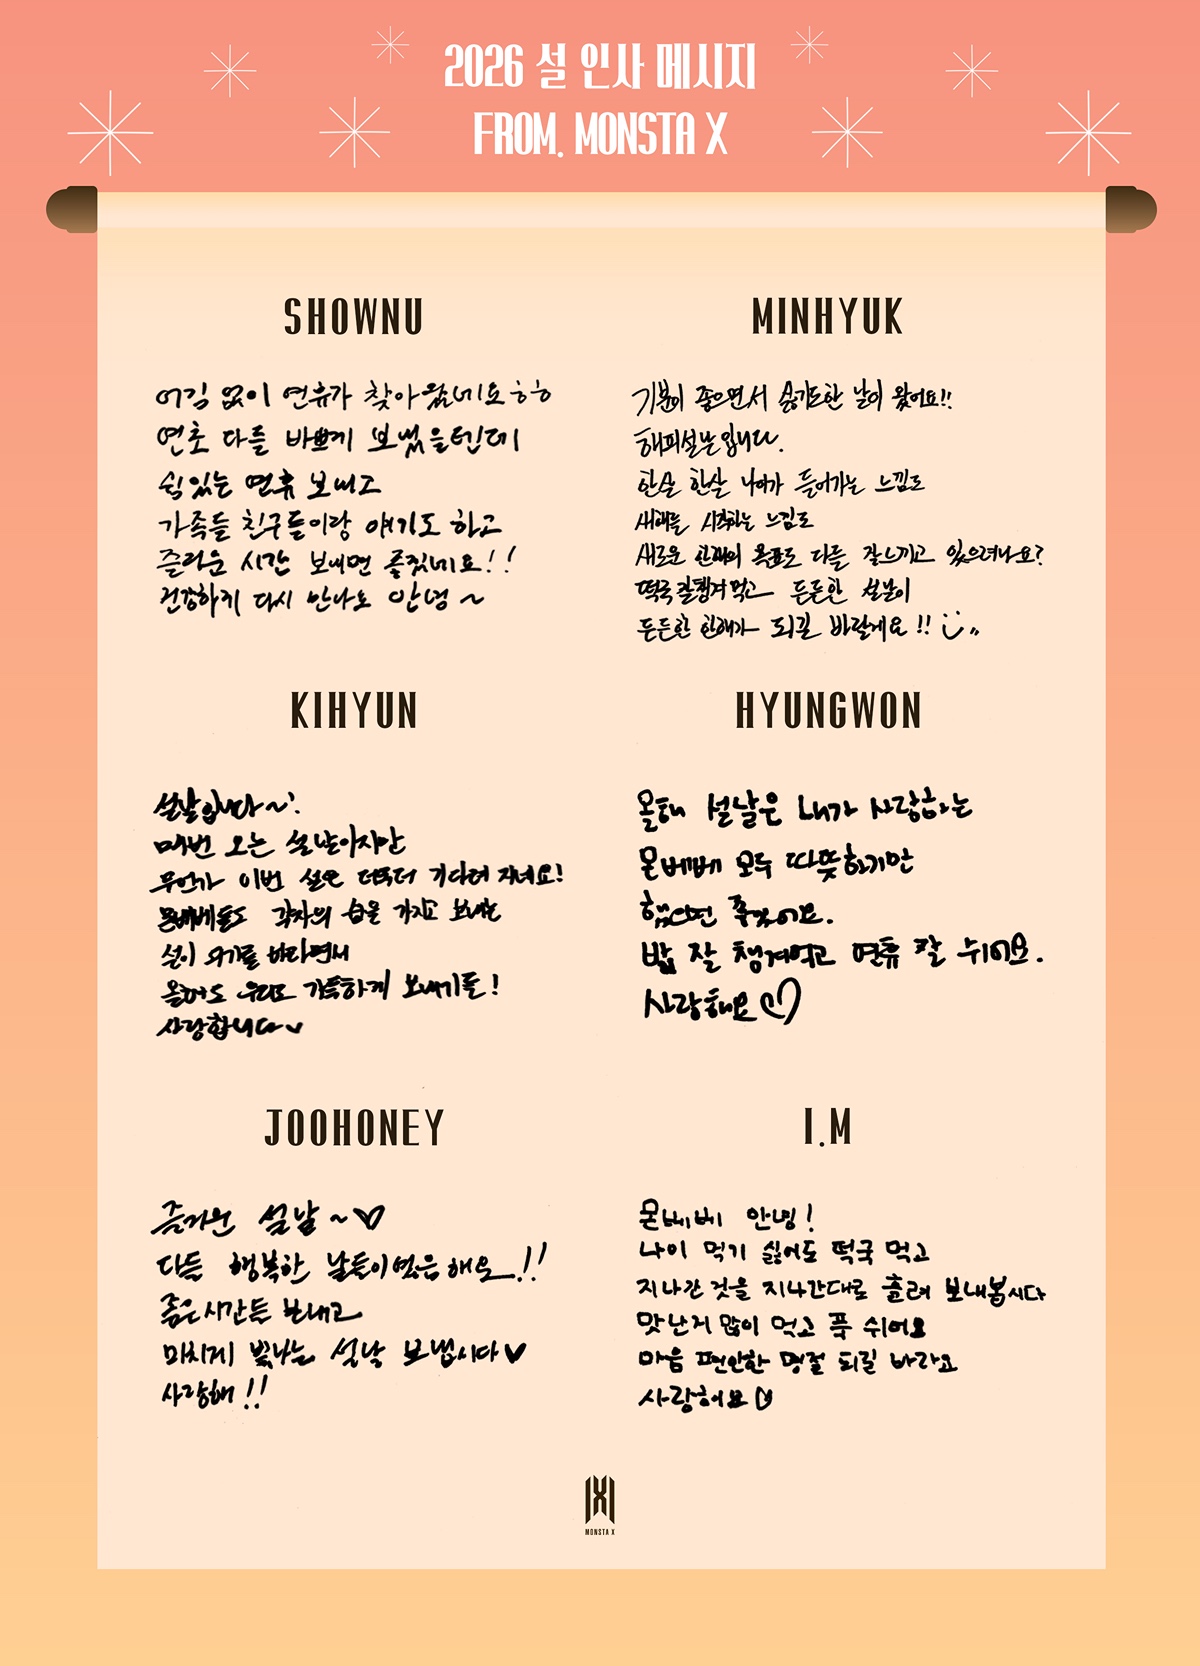 2026 설 인사 메시지
FROM. MONSTA X
SHOWNU
어김 없이 연휴가 찾아왔네요ㅎㅎ
연초 다들 바쁘게 보냈을텐데
쉼있는 연휴 보내고
가족들 친구들이랑 얘기도 하고
즐거운 시간 보내면 좋겠네요!!
건강하게 다시 만나도 안녕~
MINHYUK
기분이 좋으면서 슬기도한 날이 왔어요!!
해피설날입니다.
한살 한살 나이가 들어가는 느낌도
새해를 시작하는 느낌도
새로운 한해의 목표도 다들 잘느끼고 있으려나요?
떡국잘챙겨먹고 든든한 설분이
든든한 한해가 되길 바랄게요!!
KIHYUN
설날입니다~!
매번 오는 설날이지만
무언가 이번 설은 더욱더 기다려 지네요!
몬베베들도 각자의 쉼을 가지고 보내는
설이 되기를 바라면서
올해도 우리모 가득하게 보내기를!
사랑합니다
HYUNGWON
올해 설날은 내가 사랑하는
몬베베 모두 따뜻하기만
했으면 좋겠어요.
밥 잘 챙겨먹고 연휴 잘 쉬어요.
사랑해요♡
JOOHONEY
즐거운 설날~♡
다들 행복한 날들이었음해요!!
좋은시간들 보내고
미치게 빛나는 설날 보냅시다♥
사랑해!!
I.M
몬베베 안녕!
나이 먹기 싫어도 떡국 먹고
지나간 것을 지나간대로 흘려 보내봅시다
맛난거 많이 먹고 푹 쉬어요
마음 편안한 명절 되길 바라요
사랑해요♡
MONSTA X